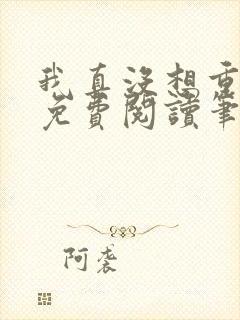 我真没想重
免費閱讀筆
阿袭